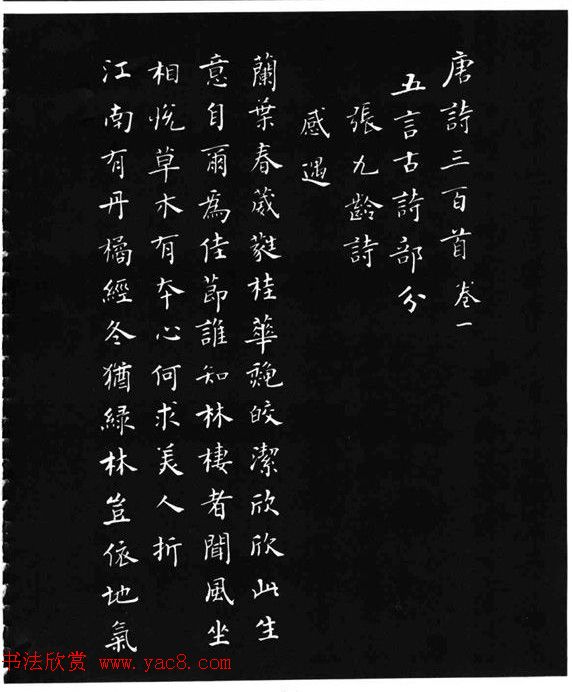 唐詩三百首 卷一
五言古詩部分
張九齡詩
感遇
蘭葉春葳蕤桂華穐皎潔欣欣此生
意自爾爲佳節誰知林棲者聞風坐
相悅草木有本心何求美人折
江南有丹橘經冬猶綠林豈依地氣
书法欣赏 www.yac8.com